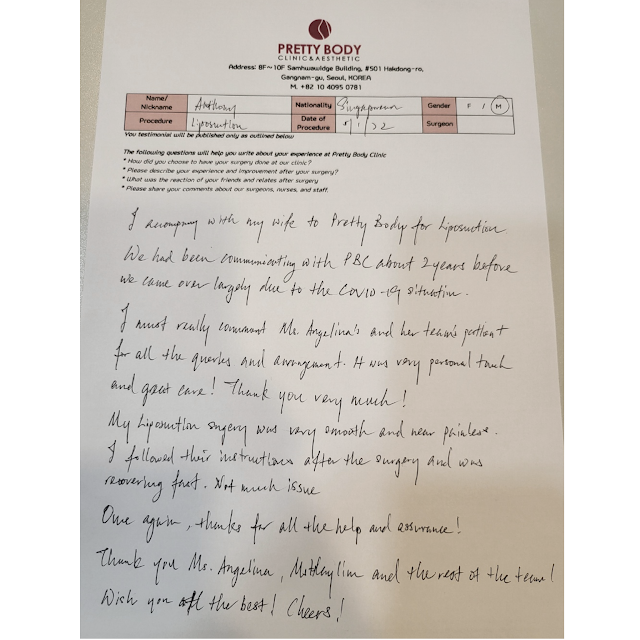 PRETTY BODY
CLINIC & AESTHETIC
Address: 8F~10F Samhwawidge Building, #501 Hakdong-ro,
Gangnam-gu, Seoul, KOREA
M. +82 10 4095 0781
Name/ Nickname Anthony Nationality Singaporean Gender F / M
Procedure Liposuction Date of Procedure /1/22 Surgeon
You testimonial will be published only as outlined below
The following questions will help you write about your experience at Pretty Body Clinic
* How did you choose to have your surgery done at our clinic?
* Please describe your experience and improvement after your surgery?
* What was the reaction of your friends and relates after surgery
* Please share your comments about our surgeons, nurses, and staff.
I accompany with my wife to Pretty Body for Liposuction
We had been communicating with PBC about 2 years before
we came over largely due to the COVID-19 situation.
I must really commend Ms. Angelina's and her team's patient
for all the queries and arrangement. It was very personal touch
and great care! Thank you very much!
My Liposuction surgery was very smooth and near painless.
I followed their instructions after the surgery and was
recovering fast. Not much issue
Once again, thanks for all the help and assurance!
Thank you Ms. Angelina, and the rest of the team!
Wish you all the best! Cheers!